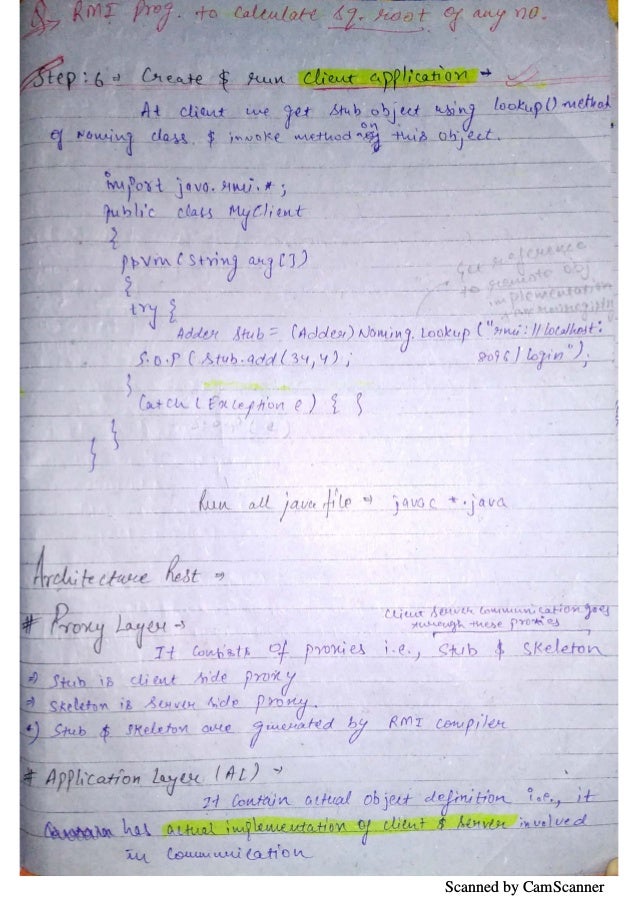 Q → RMI Prog. to calculate sq. root of any no.
Step: 6 → Create & run client application →
At client we get stub object using lookup() method
of Naming class & invoke method on this object.
import java.rmi.*;
public class MyClient
{
ppvm (String arg[])
{
try {
Get reference
to remote obj
implementation
from
Adder stub = (Adder) Naming.lookup ("rmi://localhost:
8096/login");
S.O.P (stub.add(34,4);
}
Catch (Exception e) { }
S.O.P (e)
}
}
Run all java file → javac *.java
Architecture Rest →
# Proxy Layer →
client server communication goes
through these proxies
It consists of proxies i.e., Stub & Skeleton
→ Stub is client side proxy
→ Skeleton is server side proxy.
→ Stub & Skeleton are generated by RMI compiler
# Application Layer (AL) →
It contain actual object definition i.e., it
has actual implementation of client & server involved
in communication
Scanned by CamScanner